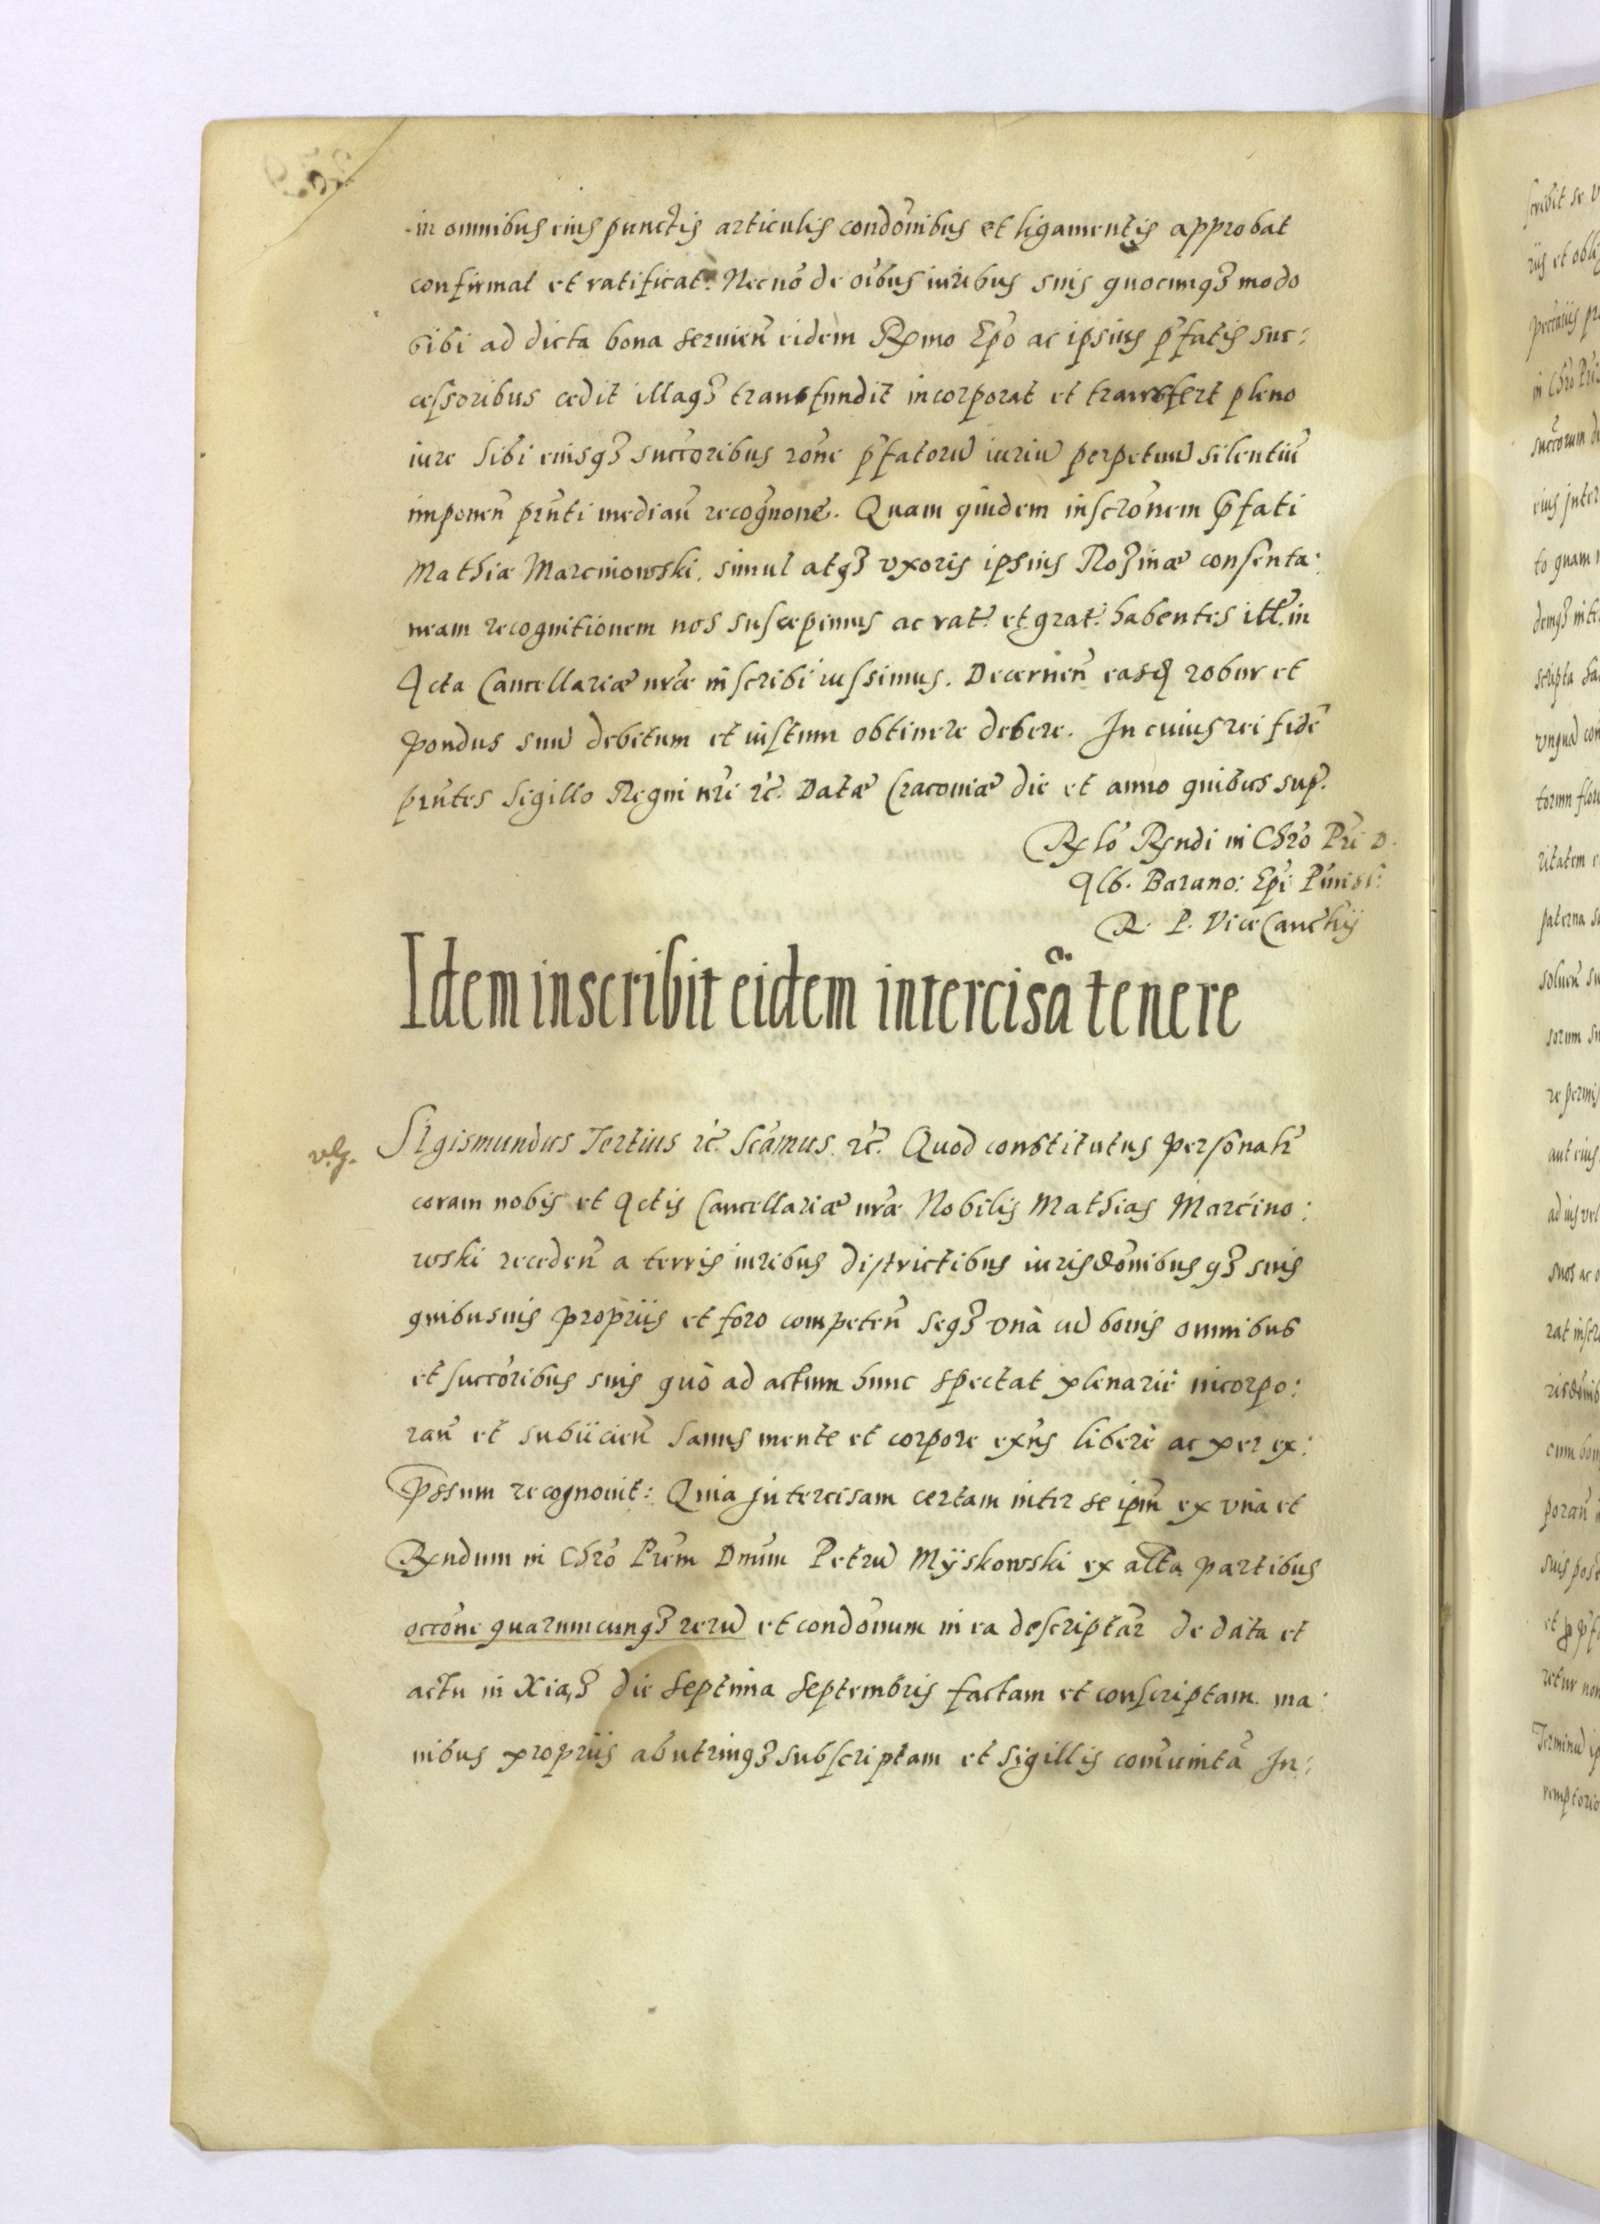 in omnibus eius punctis articulis condõnibus et ligamentis approbat
confirmat et ratificat. Necnõ de oĩbus iuribus suis quocunqȝ modo
sibi ad dicta bona seruieñ eidem Rx̃mo Ep̃o ac ipsius p̃fatis suc:
cessoribus cedit illaqȝ transfundit incorporat et transfert pleno
iure sibi eiusqȝ succ̃oribus rõne p̃fatorũ iuriũ perpetuũ silentiũ
imponeñ p̃nti medianñ recog̃none. Quam quidem inscrõnem p̃fati
Mathiæ Marcinowski, simul atqȝ vxoris ipsius Rozinæ consenta:
neam recognitionem nos suscepimus ac rat: et grat: habentes ill: in
Acta Cancellariæ nr̃æ inscribi iussimus. Decerneñ easdȝ robur et
pondus suũ debitum et iustum obtinere debere. In cuius rei fidẽ
p̃ntes Sigillo Regni nr̃i rc̃. Datæ Cracouiæ die et anno quibus sup:
Rx̃lõ Rx̃ndi in Chrõ Pr̃i D.
Alb. Barano: Ep̃i P̃misl:
R. P. ViceCancr̃ij
Idem inscribit eidem intercisã tenere
Sigismundus Tertius rc̃. Sc̃amus. rc̃. Quod constitutus personalr̃
coram nobis et Actis Cancellariæ nr̃æ Nobilis Mathias Marcino:
wski recedeñ a terris iuribus districtibus iurisdõnibusqȝ suis
quibusuis propriis et foro competeñ seqȝ vnà cũ bonis omnibus
et succ̃oribus suis quò ad actum hunc spectat plenariè incorpo:
rañ et subiicieñ sanus mente et corpore exñs liberè ac per ex:
p̃ssum recognouit: Quia Intercisam certam inter se ip̃m ex vna et
Rx̃ndum in Chrõ Pr̃em Dnũm Petrũ Mÿskowski ex alta partibus
occõne quarumcunqȝ rerũ et condõnum in ea descriptar̃ de data et
actu in Xiaȝ die Septima Septembris factam et conscriptam ma:
nibus propriis abutrinqȝ subscriptam et Sigillis comũnitã In: